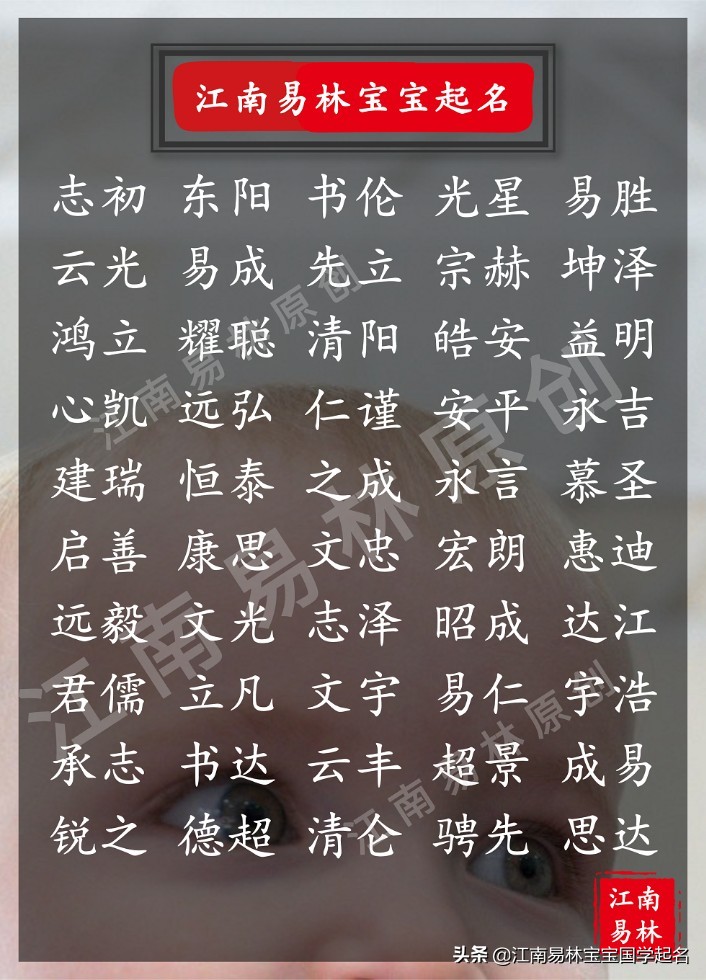 江南易林宝宝起名
志初 东阳 书伦 光星 易胜
云光 易成 先立 宗赫 坤泽
鸿立 耀聪 清阳 皓安 益明
心凯 远弘 仁谨 安平 永吉
建瑞 恒泰 之成 永言 慕圣
启善 康思 文忠 宏朗 惠迪
远毅 文光 志泽 昭成 达江
君儒 立凡 文宇 易仁 宇浩
承志 书达 云丰 超景 成易
锐之 德超 清仑 骋先 思达
江南易林原创
江南易林原创
江南易林原创
江南
易林
头条 @江南易林宝宝国学起名